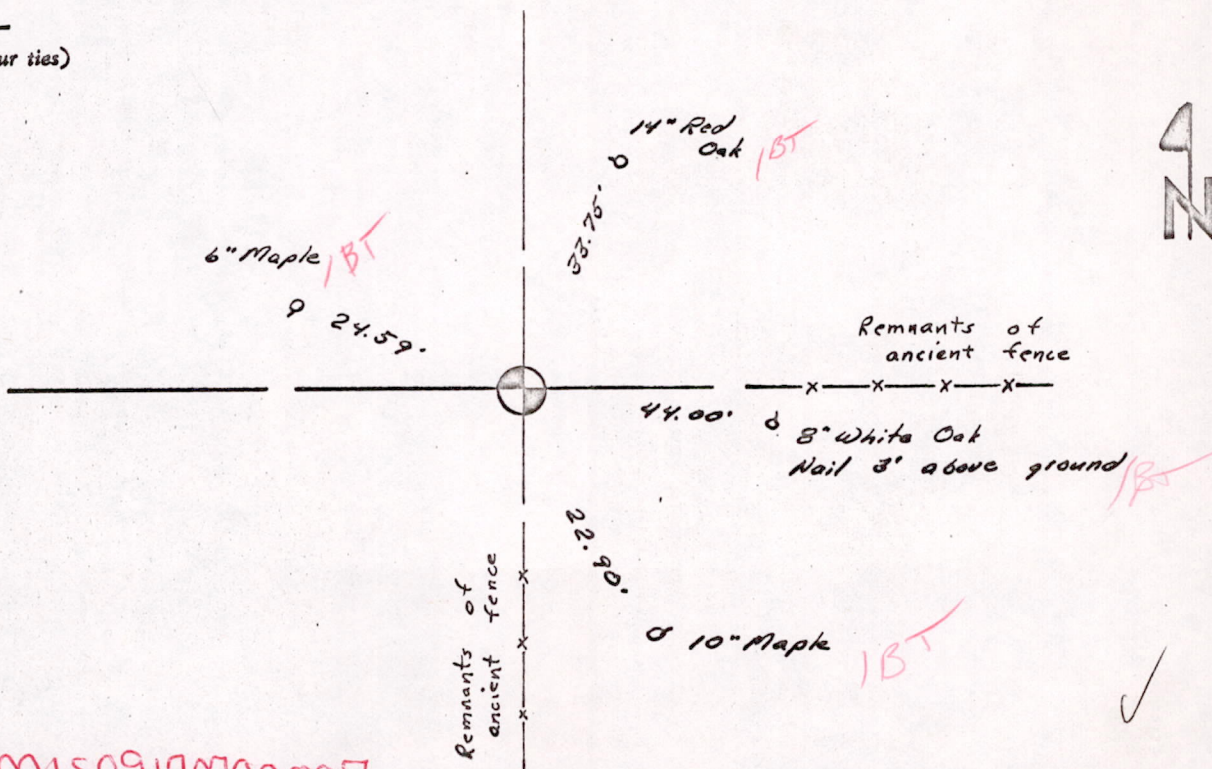 ur ties)
14" Red
Oak
1BT
33.75'
6" Maple
1BT
24.59'
N
Remnants of
ancient fence
44.00'
8" White Oak
Nail 3' above ground
1BT
22.90'
Remnants of
ancient fence
10" Maple
1BT